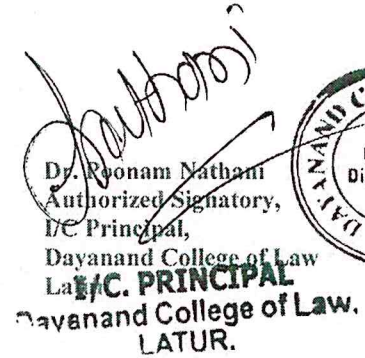 Nathani
Dr. Poonam Nathani
Authorized Signatory,
I/C Principal,
Dayanand College of Law
Latur
I/C. PRINCIPAL
Dayanand College of Law,
LATUR.
DAYANAND C
Di